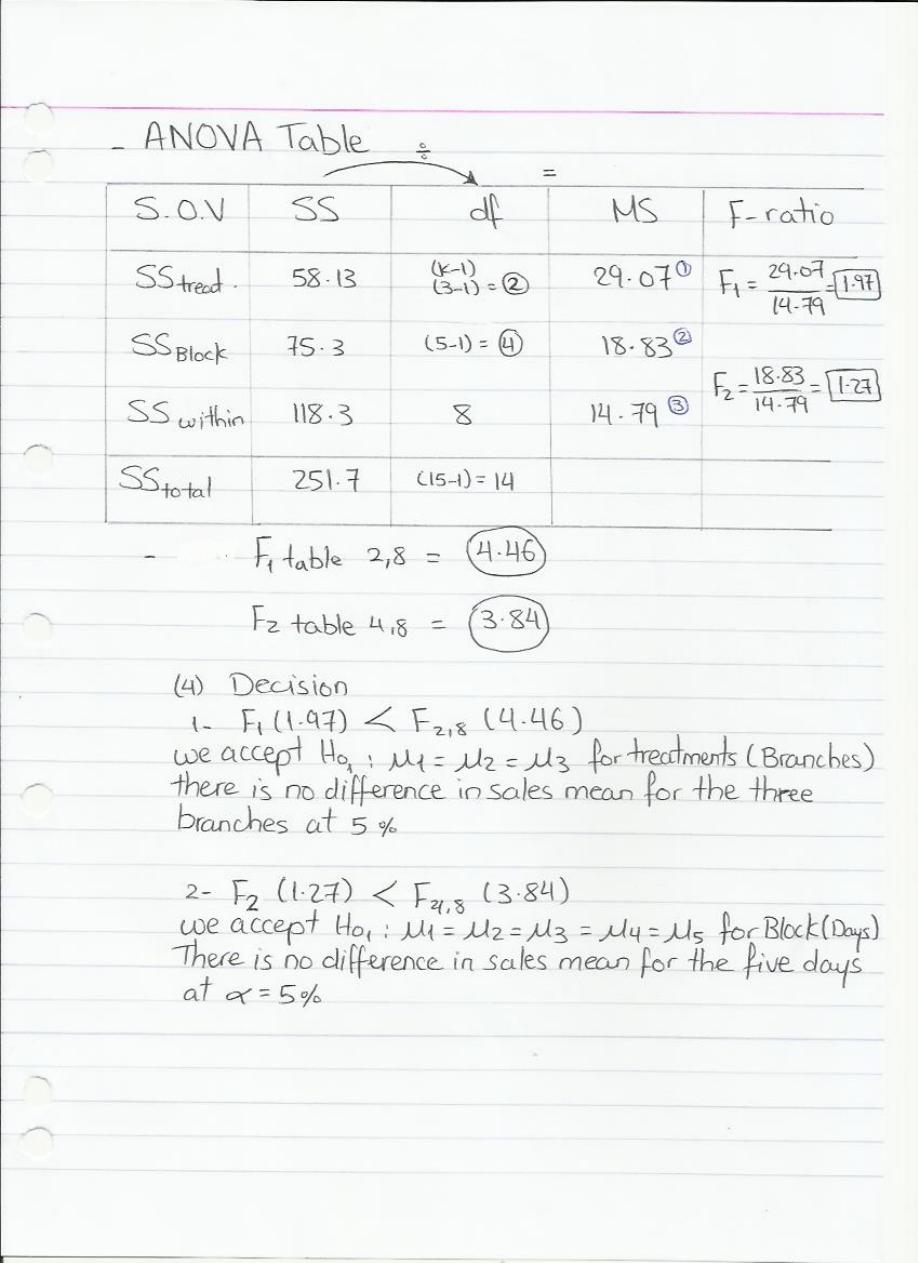 - ANOVA Table ÷
=
S.O.V SS df MS F-ratio
SS tread. 58.13 (K-1) (3-1) = ② 29.07 ① F₁ = 29.07 / 14.79 = 1.97
SS Block 75.3 (5-1) = ④ 18.83 ②
F₂ = 18.83 / 14.79 = 1.27
SS within 118.3 8 14.79 ③
SS total 251.7 (15-1) = 14
- F₁ table 2,8 = 4.46
F2 table 4,8 = 3.84
(4) Decision
1- F₁ (1.97) < F₂,₈ (4.46)
we accept Ho₁ : μ1 = μ2 = μ3 for treatments (Branches)
there is no difference in sales mean for the three
branches at 5 %
2- F₂ (1.27) < F₄,₈ (3.84)
we accept Ho₁ : μ1 = μ2 = μ3 = μ4 = μ5 for Block (Days)
There is no difference in sales mean for the five days
at α = 5%